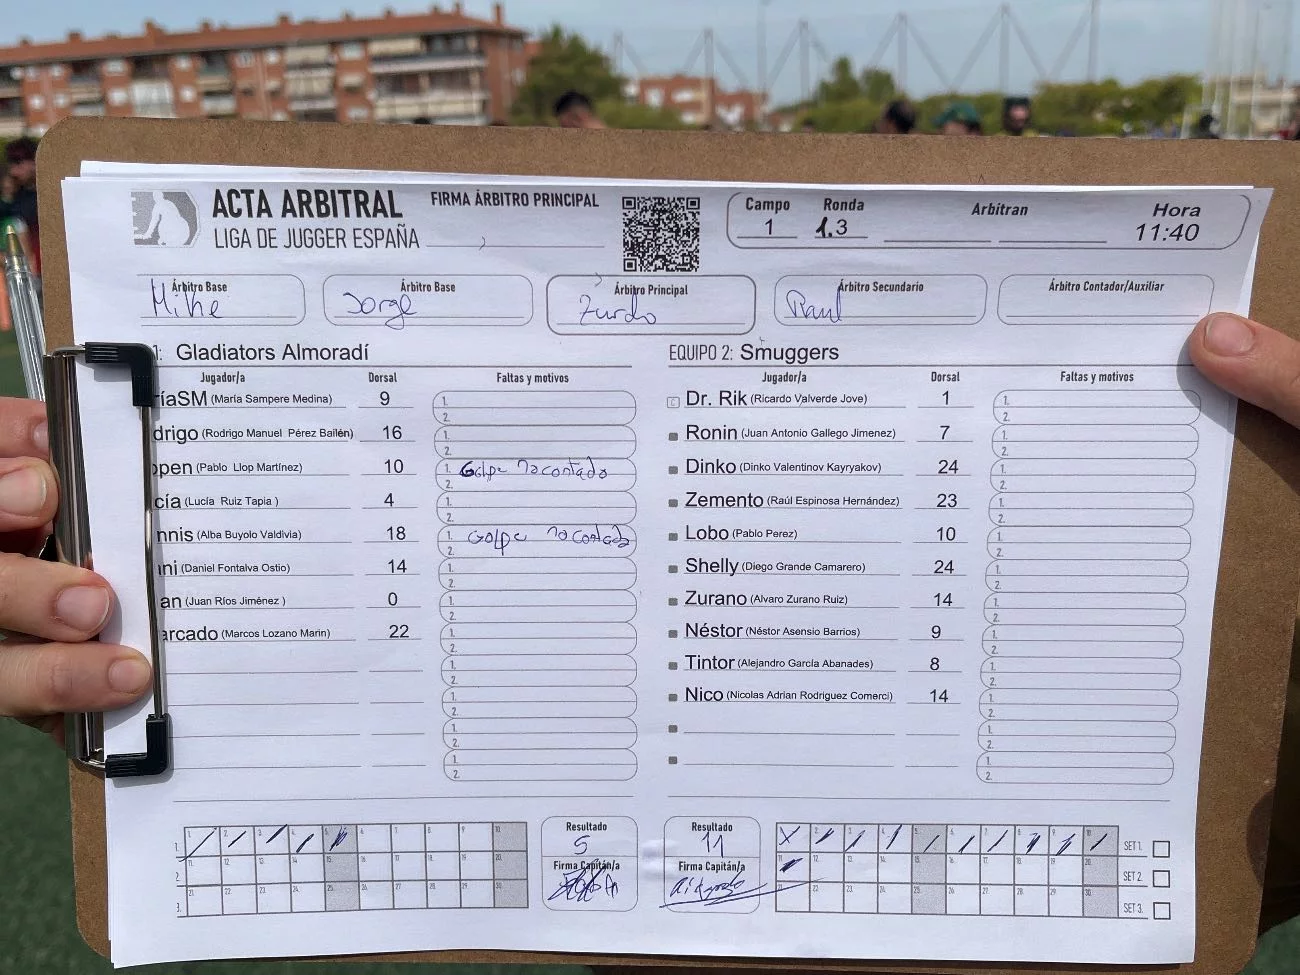 ACTA ARBITRAL
LIGA DE JUGGER ESPAÑA
FIRMA ÁRBITRO PRINCIPAL
Campo Ronda Arbitran Hora
1 1.3 11:40
Árbitro Base Árbitro Base Árbitro Principal Árbitro Secundario Árbitro Contador/Auxiliar
Mike Jorge Zurdo Raul
1: Gladiators Almoradí
Jugador/a Dorsal Faltas y motivos
ríaSM (María Sampere Medina) 9 1.
2.
drigo (Rodrigo Manuel Pérez Bailén) 16 1.
2.
open (Pablo Llop Martínez) 10 1. Golpe no contado
2.
cía (Lucía Ruiz Tapia ) 4 1.
2.
nnis (Alba Buyolo Valdivia) 18 1. Golpe no contado
2.
ni (Daniel Fontalva Ostio) 14 1.
2.
an (Juan Ríos Jiménez ) 0 1.
2.
arcado (Marcos Lozano Marin) 22 1.
2.
1.
2.
1.
2.
1.
2.
1.
2.
EQUIPO 2: Smuggers
Jugador/a Dorsal Faltas y motivos
C Dr. Rik (Ricardo Valverde Jove) 1 1.
2.
Ronin (Juan Antonio Gallego Jimenez) 7 1.
2.
Dinko (Dinko Valentinov Kayryakov) 24 1.
2.
Zemento (Raúl Espinosa Hernández) 23 1.
2.
Lobo (Pablo Perez) 10 1.
2.
Shelly (Diego Grande Camarero) 24 1.
2.
Zurano (Alvaro Zurano Ruiz) 14 1.
2.
Néstor (Néstor Asensio Barrios) 9 1.
2.
Tintor (Alejandro García Abanades) 8 1.
2.
Nico (Nicolas Adrian Rodriguez Comerci) 14 1.
2.
1.
2.
1.
2.
1. 2. 3. 4. 5. 6. 7. 8. 9. 10.
11. 12. 13. 14. 15. 16. 17. 18. 19. 20.
21. 22. 23. 24. 25. 26. 27. 28. 29. 30.
Resultado
5
Firma Capitán/a
Resultado
11
Firma Capitán/a
1. 2. 3. 4. 5. 6. 7. 8. 9. 10. SET 1.
11. 12. 13. 14. 15. 16. 17. 18. 19. 20. SET 2.
21. 22. 23. 24. 25. 26. 27. 28. 29. 30. SET 3.